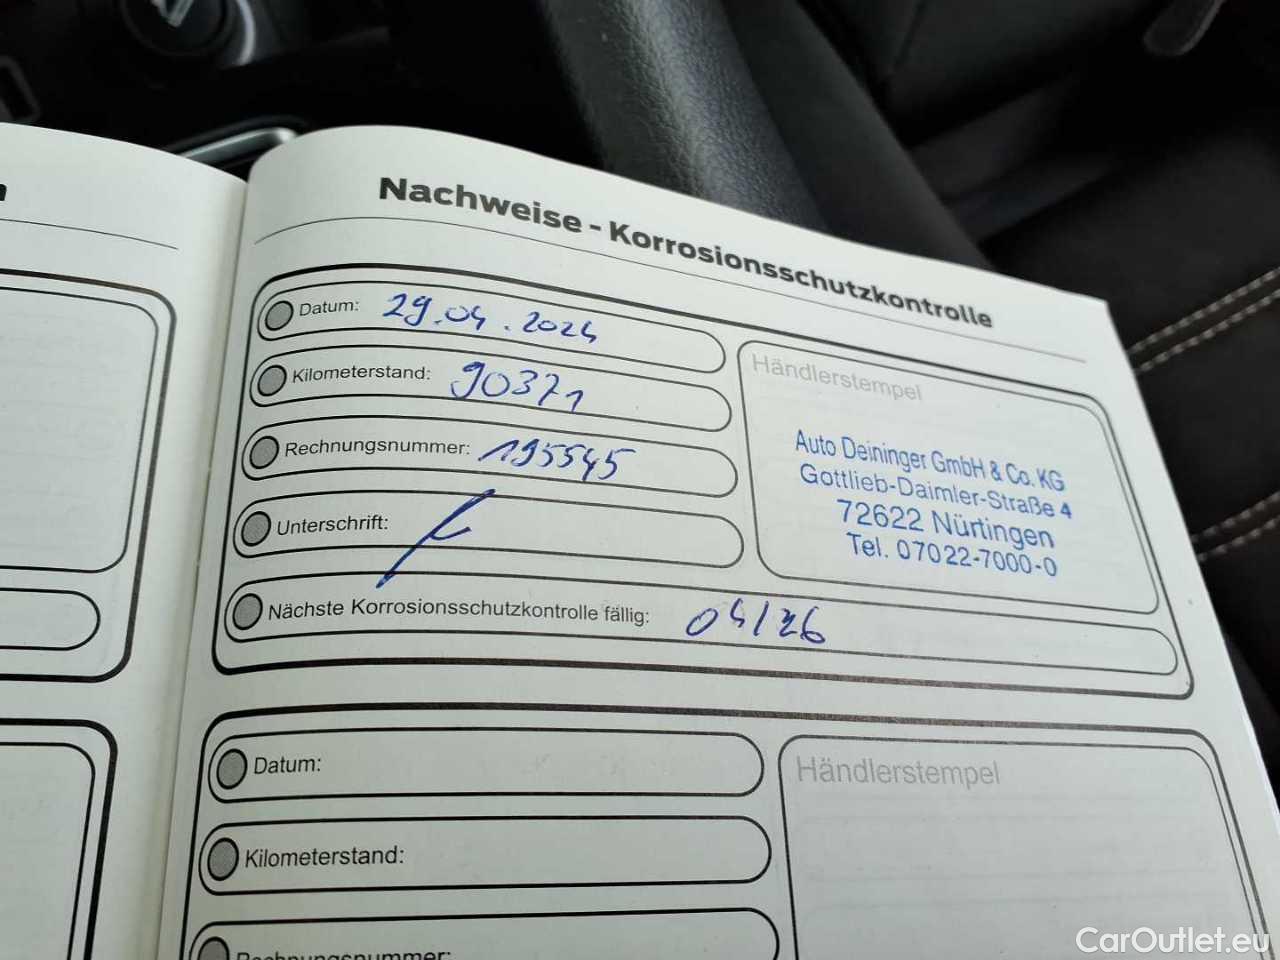 Nachweise - Korrosionsschutzkontrolle
Datum: 29.04.2024
Kilometerstand: 90371
Rechnungsnummer: 195545
Unterschrift:
Nächste Korrosionsschutzkontrolle fällig: 04/26
Händlerstempel
Auto Deininger GmbH & Co. KG
Gottlieb-Daimler-Straße 4
72622 Nürtingen
Tel. 07022-7000-0
Datum:
Kilometerstand:
Rechnungsnummer:
Händlerstempel
CarOutlet.eu